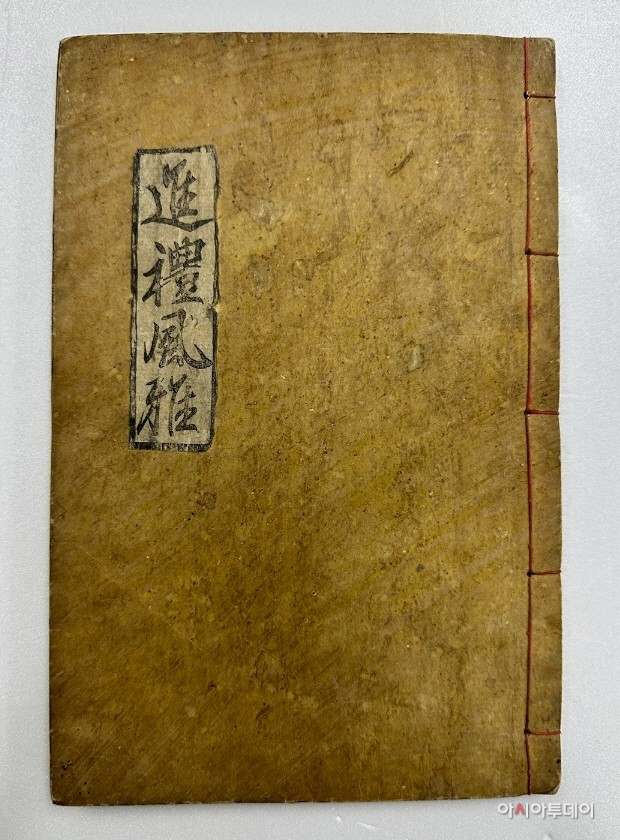 進禮風雅
아시아투데이